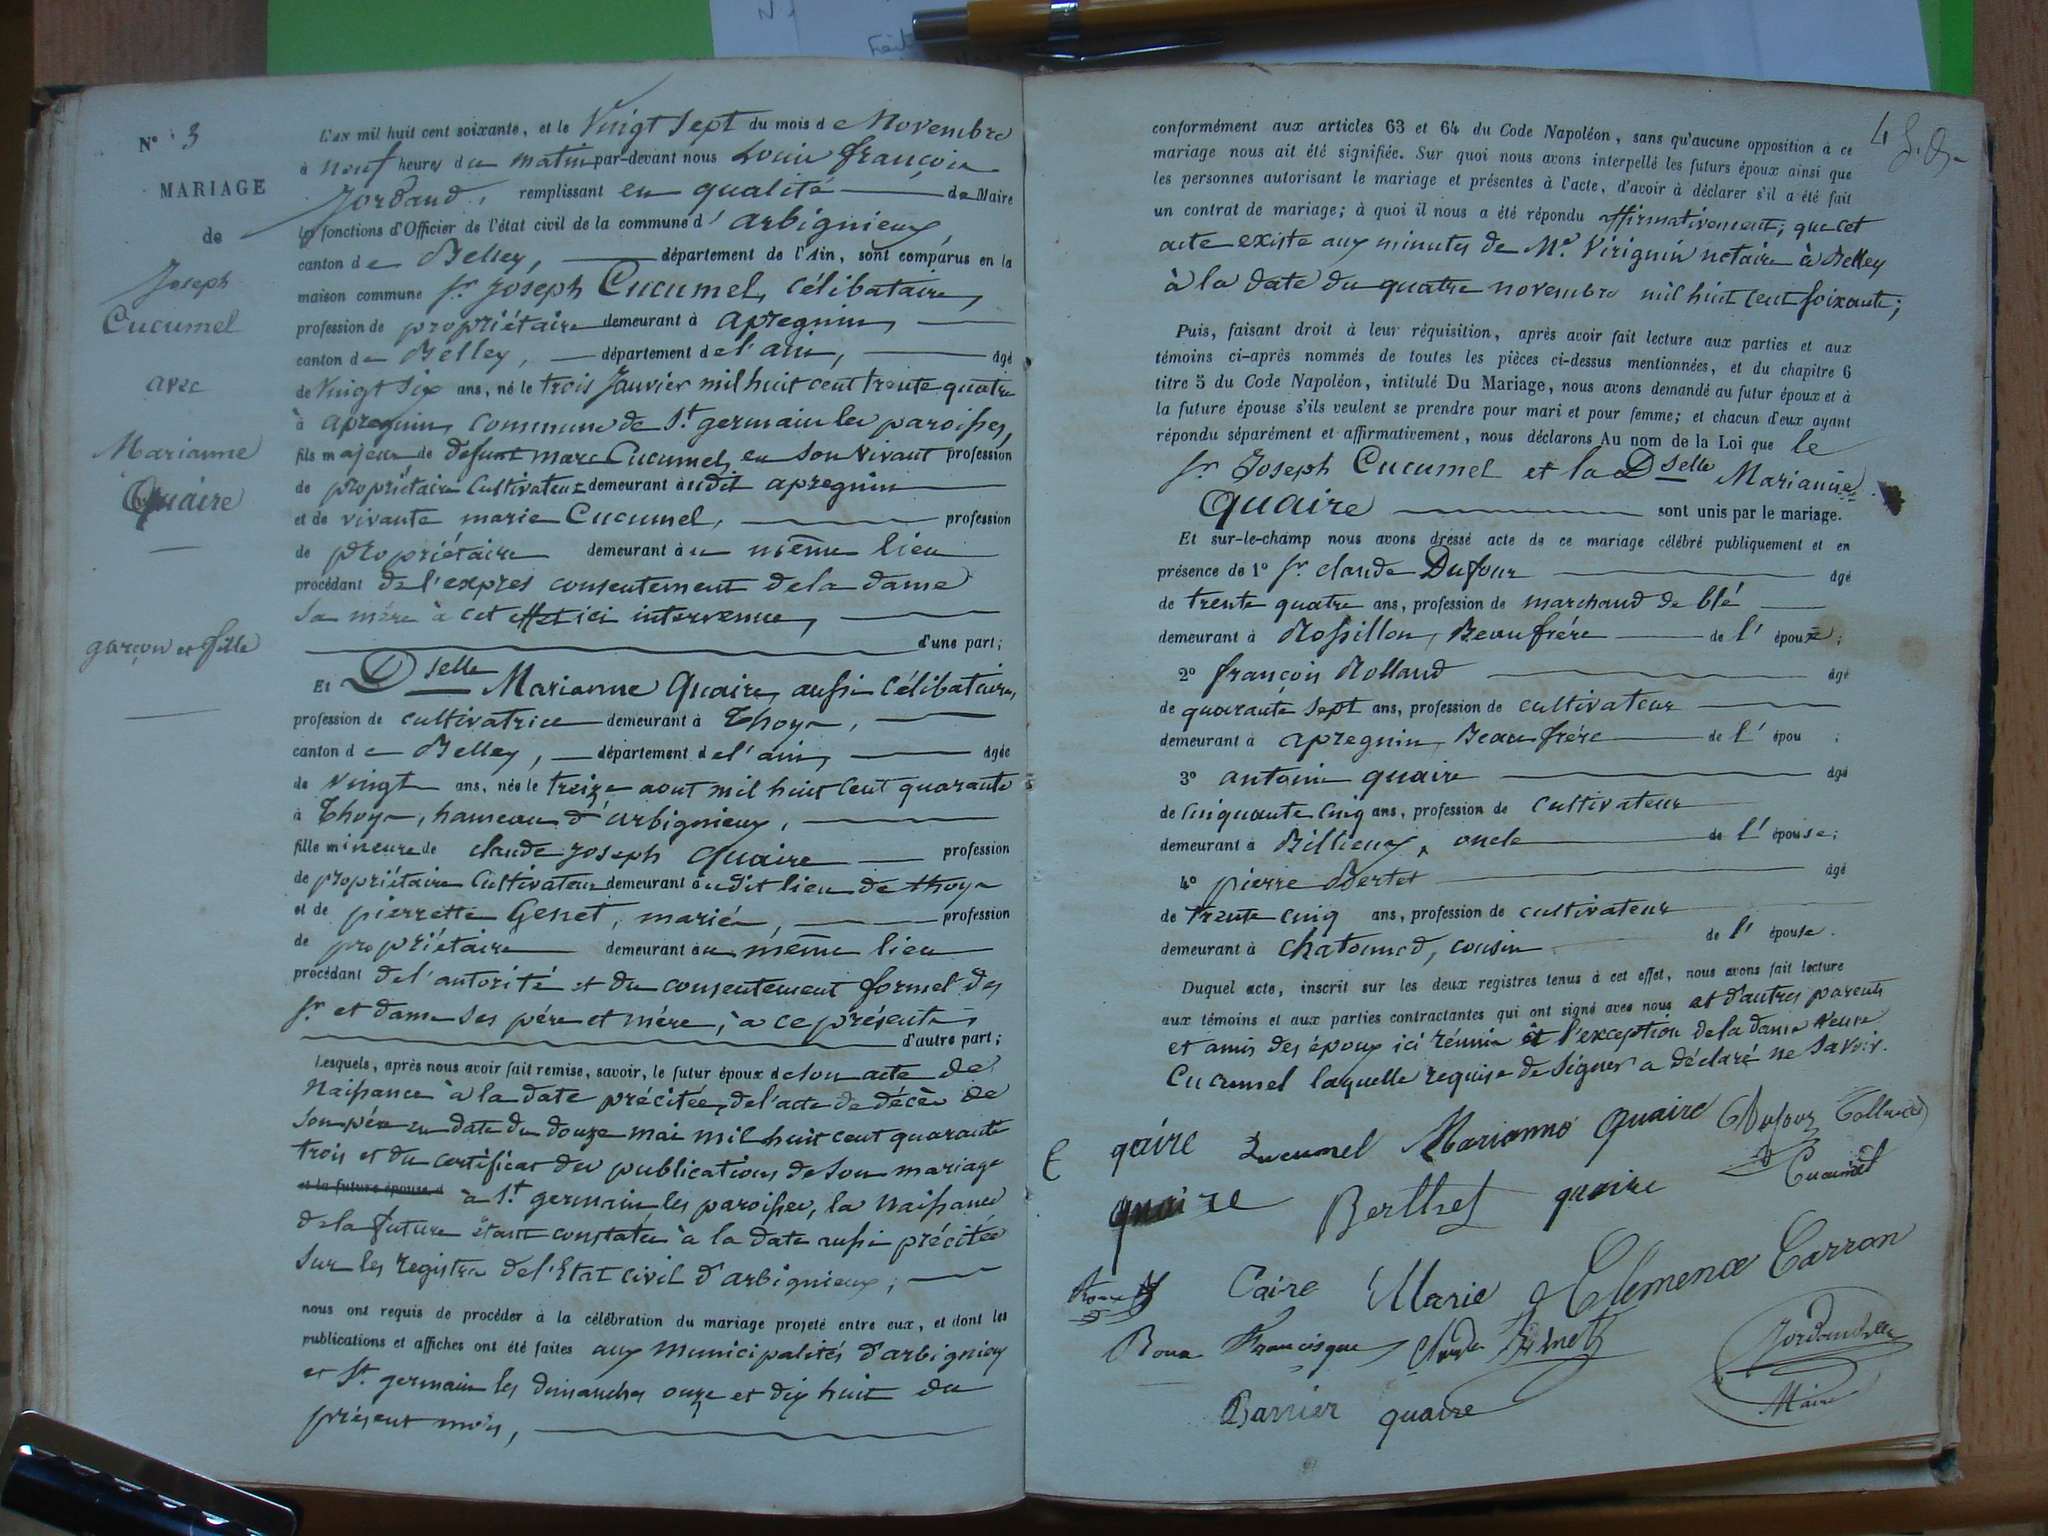 N° 3
MARIAGE
de
Joseph
Cucumel
avec
Marianne
Quaire
garçon et fille
L'an mil huit cent soixante, et le Vingt sept du mois de Novembre
à neuf heures du matin par-devant nous Louis françois
Jordand, remplissant en qualité de Maire
les fonctions d'Officier de l'état civil de la commune d'arbignieux,
canton de Belley, département de l'Ain, sont comparus en la
maison commune Sr Joseph Cucumel, célibataire,
profession de propriétaire demeurant à apregnin,
canton de Belley, département de l'ain, âgé
de Vingt six ans, né le trois Janvier mil huit cent trente quatre
à apregnin, commune de St germain les paroisses,
fils majeur de défunt marc Cucumel, en son vivant profession
de propriétaire Cultivateur demeurant audit apregnin
et de vivante marie Cucumel, profession
de propriétaire demeurant au même lieu
procédant de l'expres consentement de la dame
sa mère à cet effet ici intervenue,
d'une part;
Et Dselle Marianne Quaire, aussi célibataire,
profession de cultivatrice demeurant à Thoys,
canton de Belley, département de l'ain, âgée
de Vingt ans, née le treize aout mil huit cent quarante
à Thoys, hameau d'arbignieux,
fille mineure de claude joseph Quaire profession
de propriétaire Cultivateur demeurant audit lieu de thoys
et de pierrette Genet, mariés, profession
de propriétaire demeurant au même lieu
procédant de l'autorité et du consentement formel des
Sr et dame ses père et mère, à ce présents
d'autre part;
Lesquels, après nous avoir fait remise, savoir, le futur époux de son acte de
Naissance à la date précitée, de l'acte de décès de
son père en date du douze mai mil huit cent quarante
trois et du certificat des publications de son mariage
et la future épouse d à St germain les paroisses, la Naissance
de la future étant constatée à la date aussi précitée
sur les registres de l'Etat civil d'arbignieux;
nous ont requis de procéder à la célébration du mariage projeté entre eux, et dont les
publications et affiches ont été faites aux municipalités d'arbignieux
et St germain les dimanches onze et dix huit du
présent mois,
conformément aux articles 63 et 64 du Code Napoléon, sans qu'aucune opposition à ce
mariage nous ait été signifiée. Sur quoi nous avons interpellé les futurs époux ainsi que
les personnes autorisant le mariage et présentes à l'acte, d'avoir à déclarer s'il a été fait
un contrat de mariage; à quoi il nous a été répondu affirmativement; que cet
acte existe aux minutes de Me Viriguin notaire à Belley
à la date du quatre novembre mil huit cent soixante;
Puis, faisant droit à leur réquisition, après avoir fait lecture aux parties et aux
témoins ci-après nommés de toutes les pièces ci-dessus mentionnées, et du chapitre 6
titre 5 du Code Napoléon, intitulé Du Mariage, nous avons demandé au futur époux et à
la future épouse s'ils veulent se prendre pour mari et pour femme; et chacun d'eux ayant
répondu séparément et affirmativement, nous déclarons Au nom de la Loi que le
Sr Joseph Cucumel et la Dselle Marianne
Quaire sont unis par le mariage.
Et sur-le-champ nous avons dressé acte de ce mariage célébré publiquement et en
présence de 1° Sr claude Dufour âgé
de trente quatre ans, profession de marchand de blé
demeurant à Rossillon, Beaufrére de l'époux;
2° françois Rolland âgé
de quarante sept ans, profession de cultivateur
demeurant à apregnin, Beaufrére de l'épou ;
3° antoine quaire âgé
de Cinquante Cinq ans, profession de cultivateur
demeurant à Billieux, oncle de l'épouse;
4° pierre Bertet âgé
de trente cinq ans, profession de cultivateur
demeurant à chatonnod, cousin de l'épouse.
Duquel acte, inscrit sur les deux registres tenus à cet effet, nous avons fait lecture
aux témoins et aux parties contractantes qui ont signé avec nous et d'autres parents
et amis des époux ici réunis à l'exception de la dame Veuve
Cucumel laquelle requise de signer a déclaré ne savoir.
C quire Cucumel Marianne Quaire Dufour Rolland
quaire Berthet quaire Cucumel
Caire Marie Clemence Carron
Roux Francisque Genet Jordand
Barrier quaire Maire